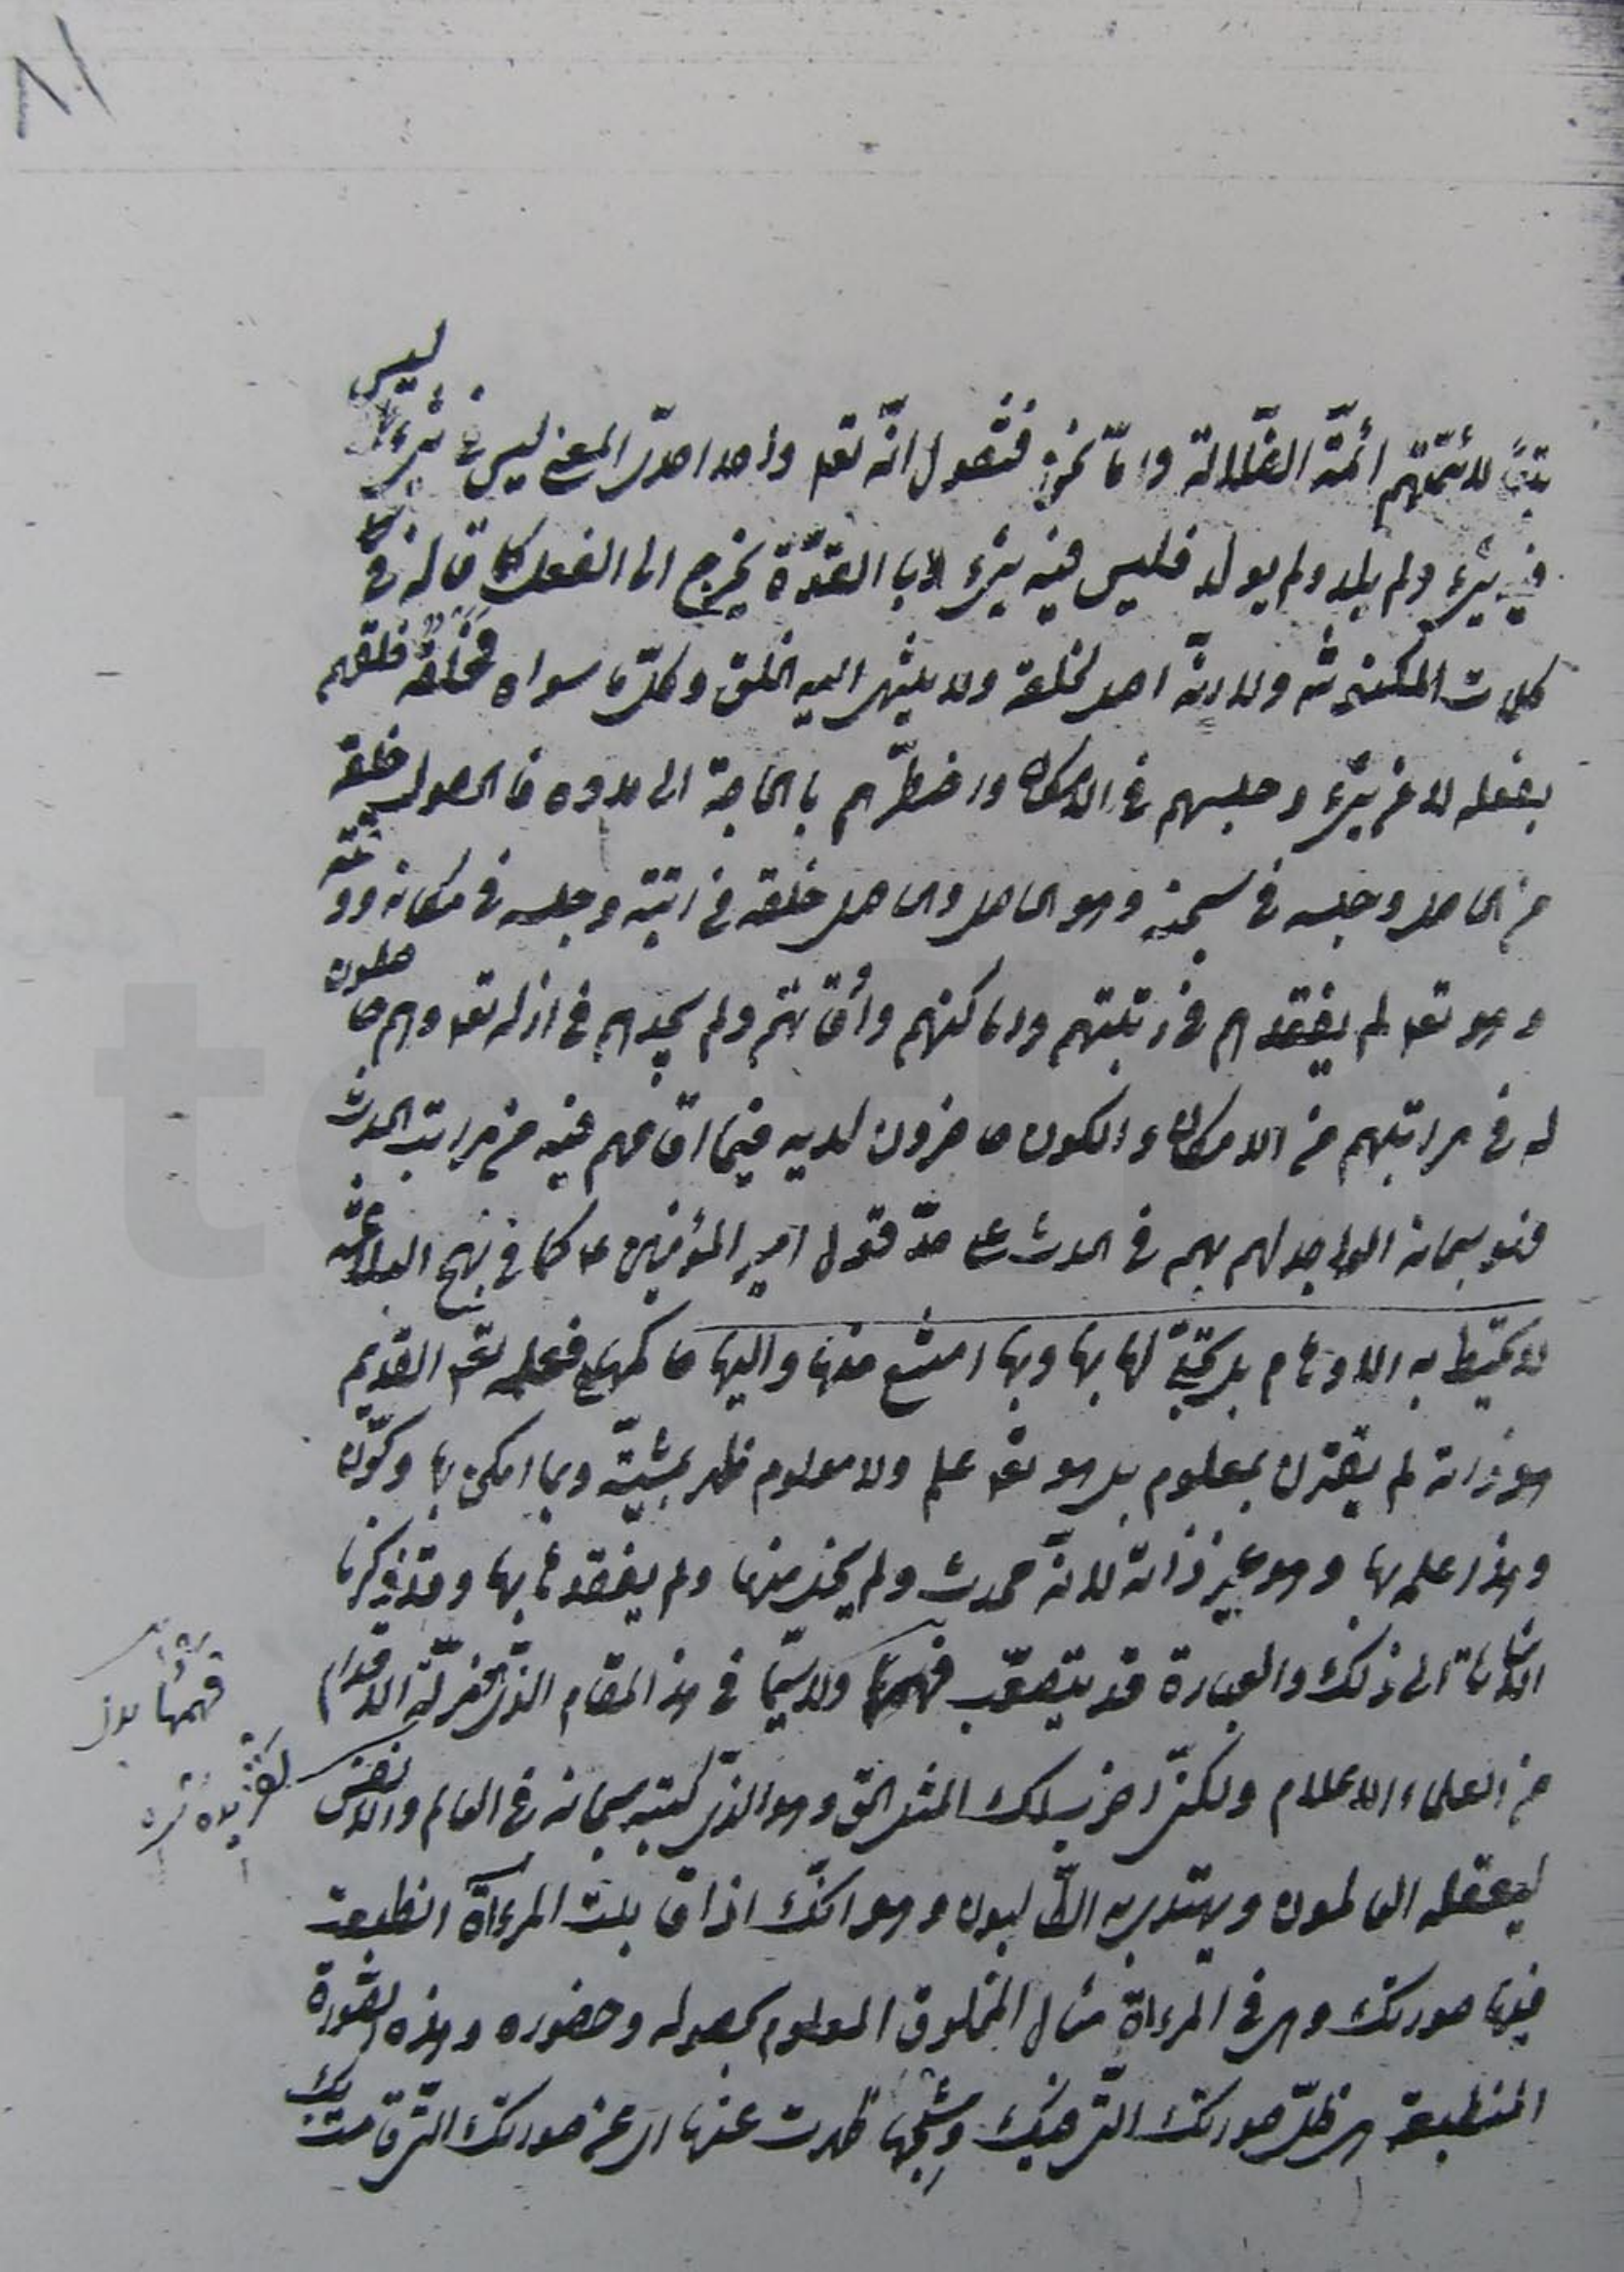 تبعًا لأئمّتهم أئمّة الضّلالة وامّا نحن فنقول انّه تعه واحد احديّ المعنى ليس في شيء ليس
فيه شيء ولم يلد ولم يولد فليس فيه شيء لا با القوّة يخرج الى الفعل كما قاله في
كلمات المكنونة ولا ربّه احد لخلقه ولا ينتهي اليه الخلق وكلّ ما سواه فخلقه خلقهم
بفعله لا من شيء وحبسهم في الامكان واضطرّهم با الحاجة الى مدده فالحصول خلقه
من الحاصل وحبسه في سجنه وهو الحاصل والحاصل خلقه في رتبته وحبسه في مكانه ووقته
وهو تعه لم يفقدهم في رتبتهم واماكنهم وأوقاتهم ولم يجدهم في ازله تعه وهم حاصلون
له في مراتبهم من الامكان والكون حاضرون لديه فيما اقامهم فيه من مراتب الحدث
فهو سبحانه الواجد لهم بهم في الحدث على حدّ قول امير المؤمنين ع كما في نهج البلاغة
لا تحيط به الاوهام بل تجلّى لها بها وبها امتنع منها واليها حاكمها فعلمه تعه القديم
هو ذاته لم يقترن بمعلوم بل هو تعه علم ولا معلوم ظهر بمشيّته وبما امكن بها وكوّن
وهذا علمه بها وهو غير ذاته لانّه حدث ولم يخل منها ولم يفقدها بها وقد ذكرنا
اشارة الى ذلك والعبارة قد يتصعّب فهمها ولا سيّما في هذا المقام الذي فيه زلّة الاقدام
فهمها بدل
من العلماء الاعلام ولكنّ اضرب لك المثل الحق وهو الذي كتبه سبحانه في العالم والانفس
ليعقله العالمون ويهتدي به الطّالبون وهو انّك اذا قابلت المرءآة انطبعت
فيها صورتك وهي في المرءاة مثال المخلوق المعلوم بحصوله وحضوره وهذه الصّورة
المنطبعة هي ظلّ صورتك الّتي فيك وشبحها ظهرت عنها اي عن صورتك الّتي قامت بك